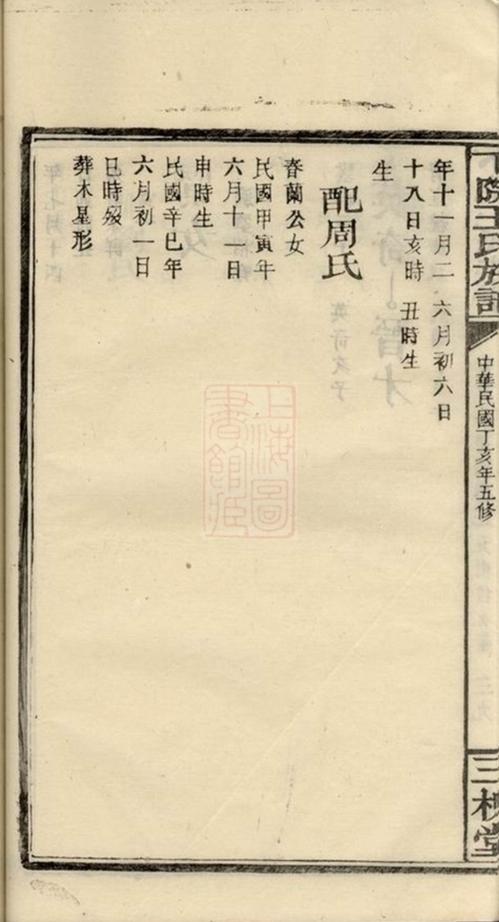 院王氏族譜
中華民國丁亥年五修
三槐堂
年十一月二　六月初六日
十八日亥時　丑時生
生
配周氏
春蘭公女
民國甲寅年
六月十一日
申時生
民國辛巳年
六月初一日
巳時歿
葬木星形
上海圖
書館藏